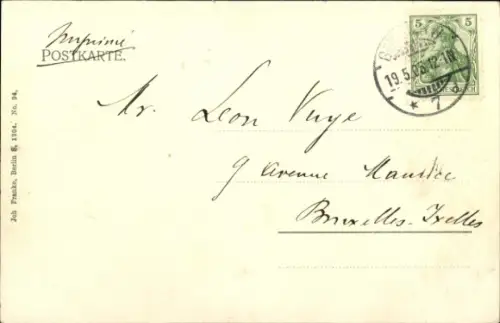 Imprimé
POSTKARTE.
5 5
19.5.
12-1N
* 7
Mr. Leon Vuye
9 Avenue Maurice
Bruxelles-Ixelles
Joh Franke, Berlin S, 1904. No. 94.